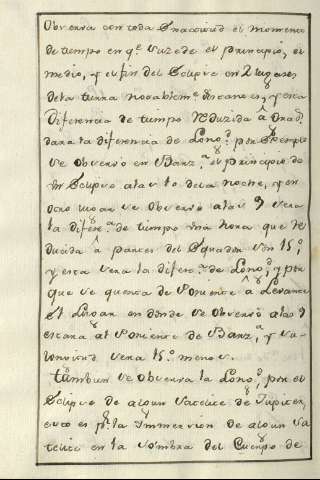 Observa con toda Exaccion el momento
de tiempo en q.e sucede el principio, el
medio, y el fin del Eclipse en 2 lugares
dela tierra notablem.te distantes, y esta
Diferencia de tiempo reduzida à Quad.
dara la diferencia de Long.d por Exemplo
se observò en Barz.a el principio de
un Eclipse alas 10 dela noche, y en
otro lugar se observo alas 9 sera
la difer.a de tiempo una hora que re
ducida à partes del Equador son 15.°
y esta sera la difer.a de Long.d y por
que se quenta de Poniente à Levante
el Lugar en donde se observò alas 9
estara al Poniente de Barz.a, y su
longitud sera 15.° menos.
Tambien se observa la Long.d, por el
Eclipse de algun Satelite de Jupiter,
esto es p.r la Immersion de algun Sa
telite en la sombra del Cuerpo de